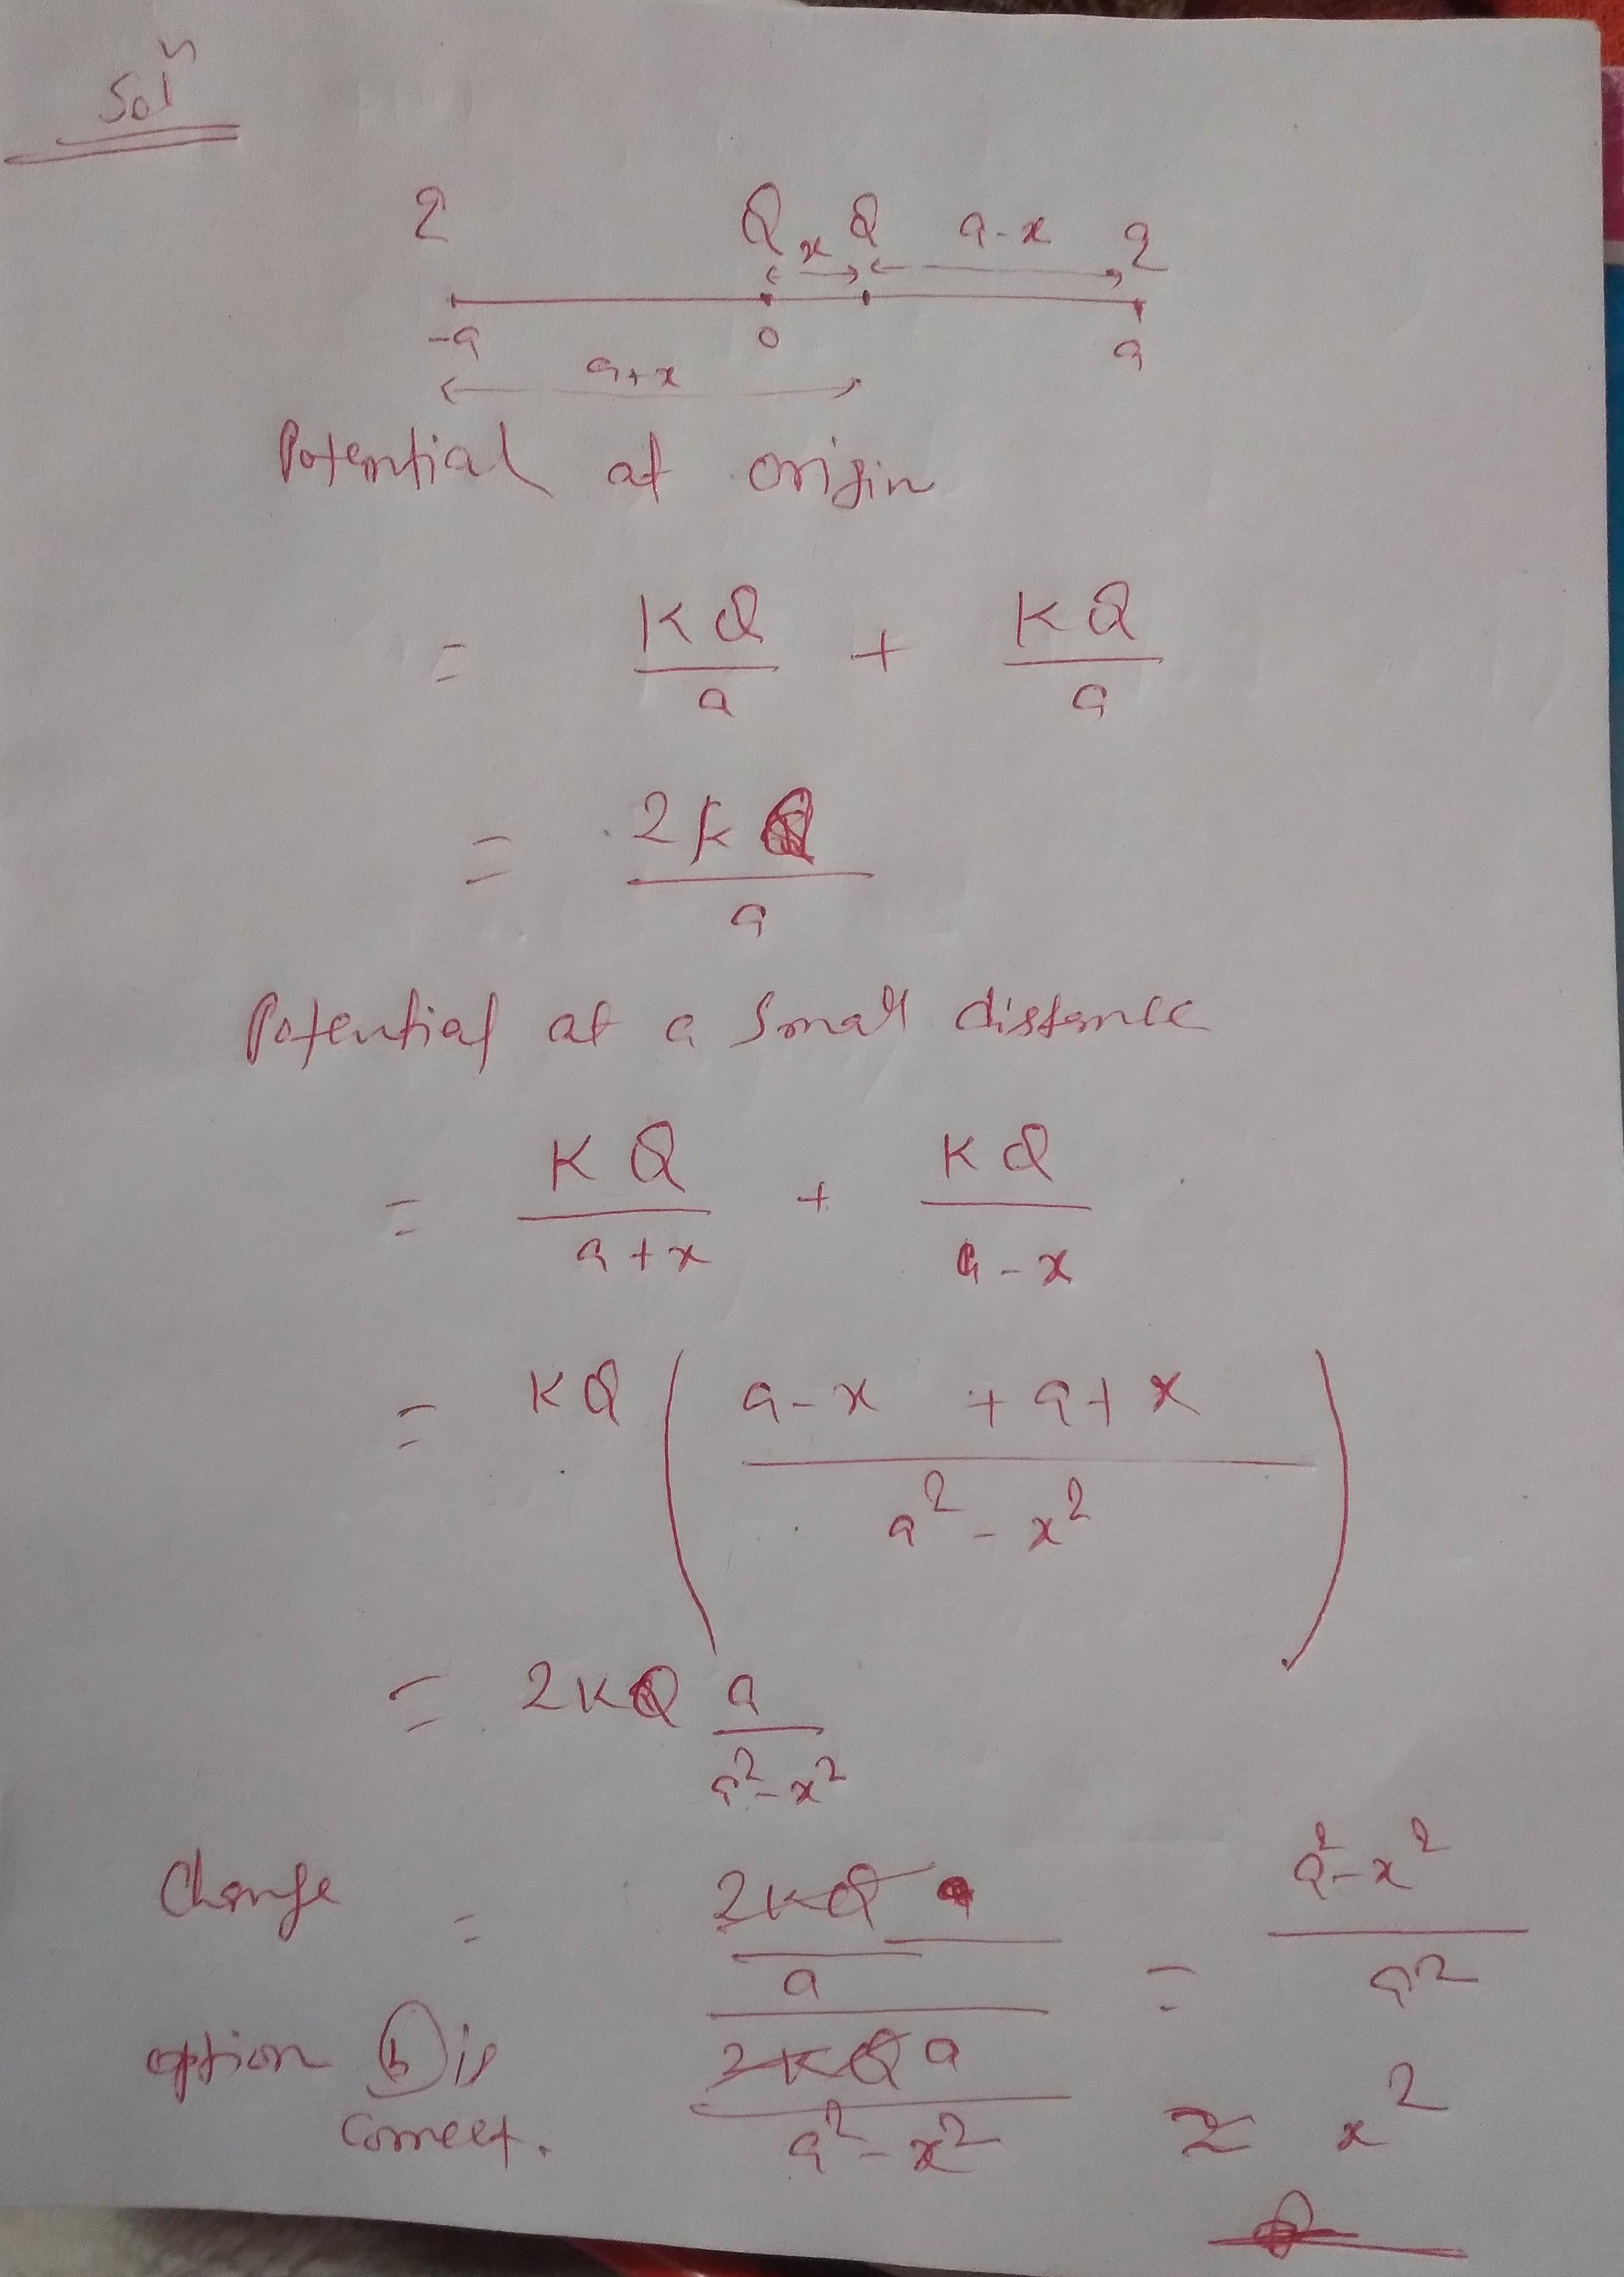 Solⁿ
q Q x Q a-x q
-a 0 a
a+x
Potential at origin
= KQ/a + KQ/a
= 2KQ/a
Potential at a small distance
= KQ/(a+x) + KQ/(a-x)
= KQ ( (a-x + a+x)/(a²-x²) )
= 2KQ a/(a²-x²)
Change = (2KQ/a)/(2KQa/(a²-x²)) = (a²-x²)/a²
option (b) is
correct. ≈ x²